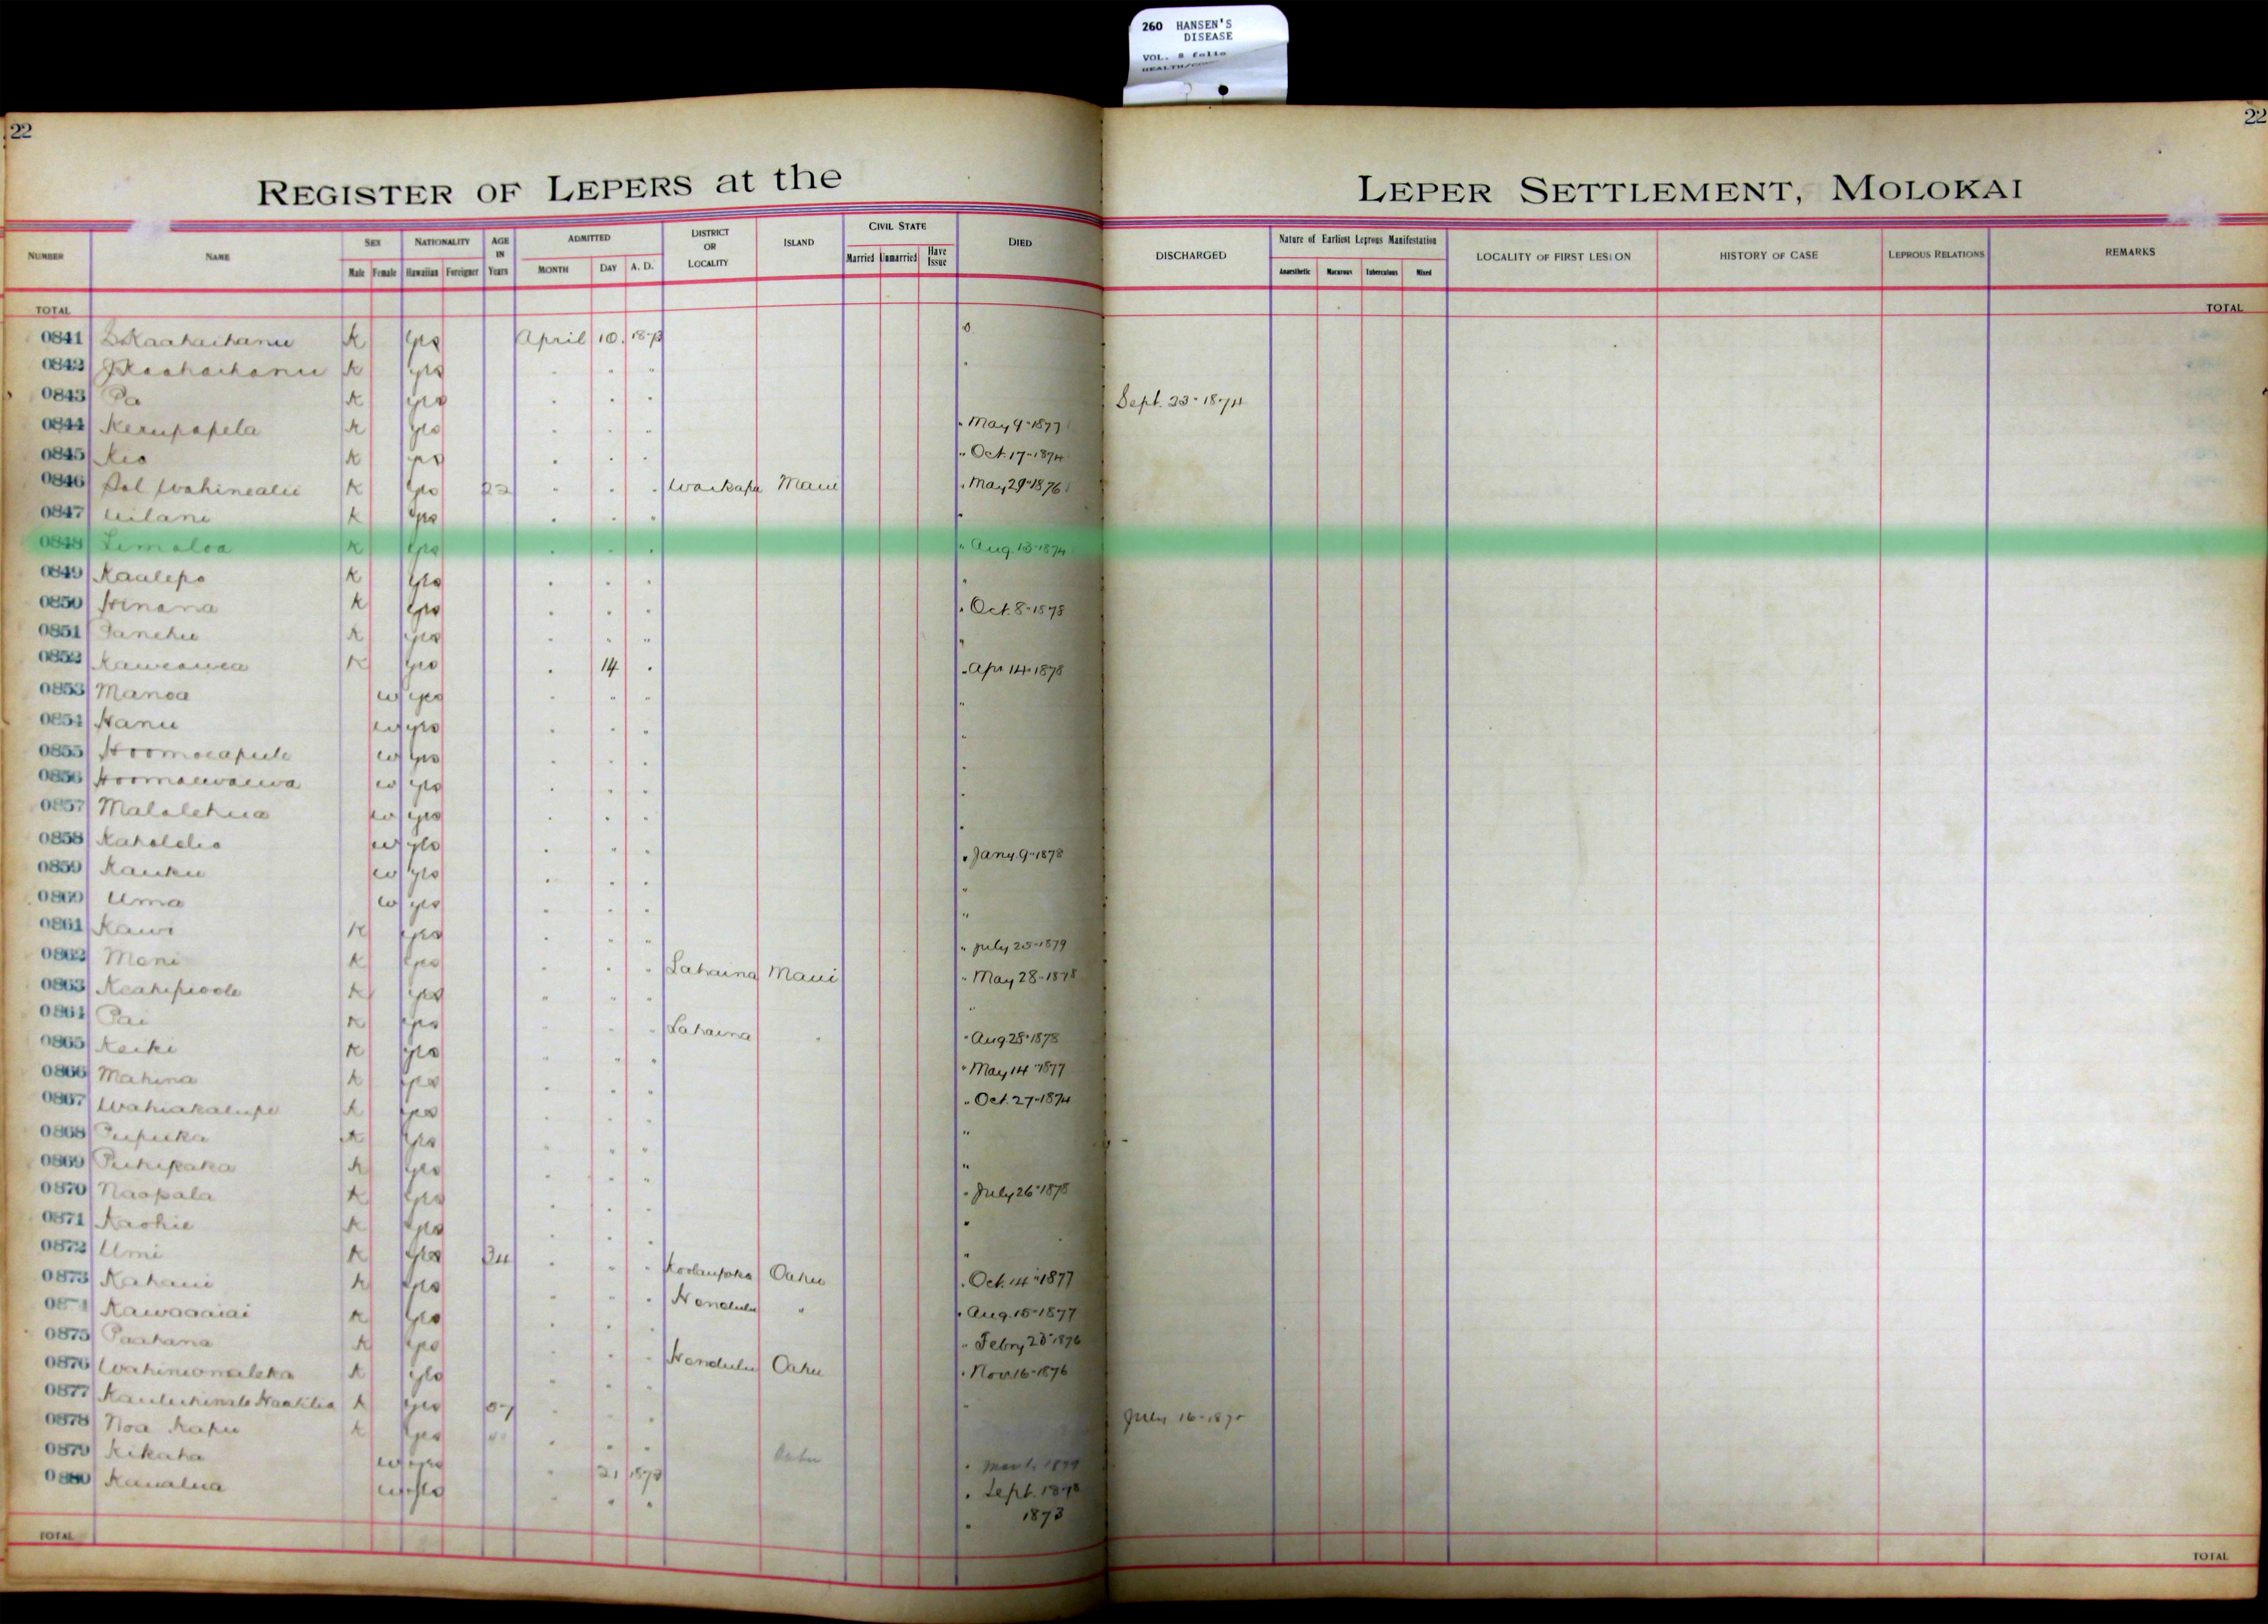 260 HANSEN'S
DISEASE
VOL. 8 folio
22
22
REGISTER OF LEPERS at the
LEPER SETTLEMENT, MOLOKAI
NUMBER NAME SEX Male Female NATIONALITY Hawaiian Foreigner AGE IN Years ADMITTED MONTH DAY A. D. DISTRICT OR LOCALITY ISLAND CIVIL STATE Married Unmarried Have Issue DIED
DISCHARGED Nature of Earliest Leprous Manifestation Anaesthetic Macurous Tuberculous Mixed LOCALITY OF FIRST LESION HISTORY OF CASE LEPROUS RELATIONS REMARKS
TOTAL TOTAL
0841 K yes April 10. 1873
0842 K yes " " "
0843 Pa K yes " " " Sept. 23-1874
0844 K yes " " " " May 9-1877
0845 Kio K yes " " " " Oct. 17-1874
0846 Sol Wahinealii K yes 22 " " " Waikapu Maui " May 29-1876
0847 Leilani K yes " " " "
0848 Limaloa K yes " " " " Aug. 13-1874
0849 Kaalepo K yes " " " "
0850 Hinana K yes " " " " Oct. 8-1878
0851 K yes " " " "
0852 Kaweawea K yes " 14 " " Apr 14-1878
0853 Manoa w yes " " " "
0854 Hanu w yes " " " "
0855 Hoomoeapule w yes " " " "
0856 Hoomauwauwa w yes " " " "
0857 Malolehua w yes " " " "
0858 Kaholelio w yes " " " " Jany. 9-1878
0859 Kauku w yes " " " "
0860 Uma w yes " " " "
0861 Kawi K yes " " " " July 25-1879
0862 Moni K yes " " " Lahaina Maui " May 28-1878
0863 K yes " " " "
0864 Pai K yes " " " Lahaina " " Aug 28-1878
0865 Keiki K yes " " " " May 14-1877
0866 Mahina K yes " " " " Oct. 27-1874
0867 Wahiakalupe K yes " " " "
0868 Pupuka K yes " " " "
0869 Puhipaka K yes " " " " July 26-1878
0870 Naopala K yes " " " "
0871 Kaohie K yes " " " "
0872 Umi K yes 34 " " " Koolaupoko Oahu " Oct. 14-1877
0873 Kahaui K yes " " " Honolulu " " Aug. 15-1877
0874 Kawaaaiai K yes " " " " Febry 28-1876
0875 Paahana K yes " " " Honolulu Oahu " Nov. 16-1876
0876 K yes " " " "
0877 K yes " " " July 16-187
0878 Noa Kapu K yes " " " Oahu " 1879
0879 Kikaha w yes " 21 1873 " Sept. 1878
0880 Kanalua w yes " " " " 1873
TOTAL TOTAL